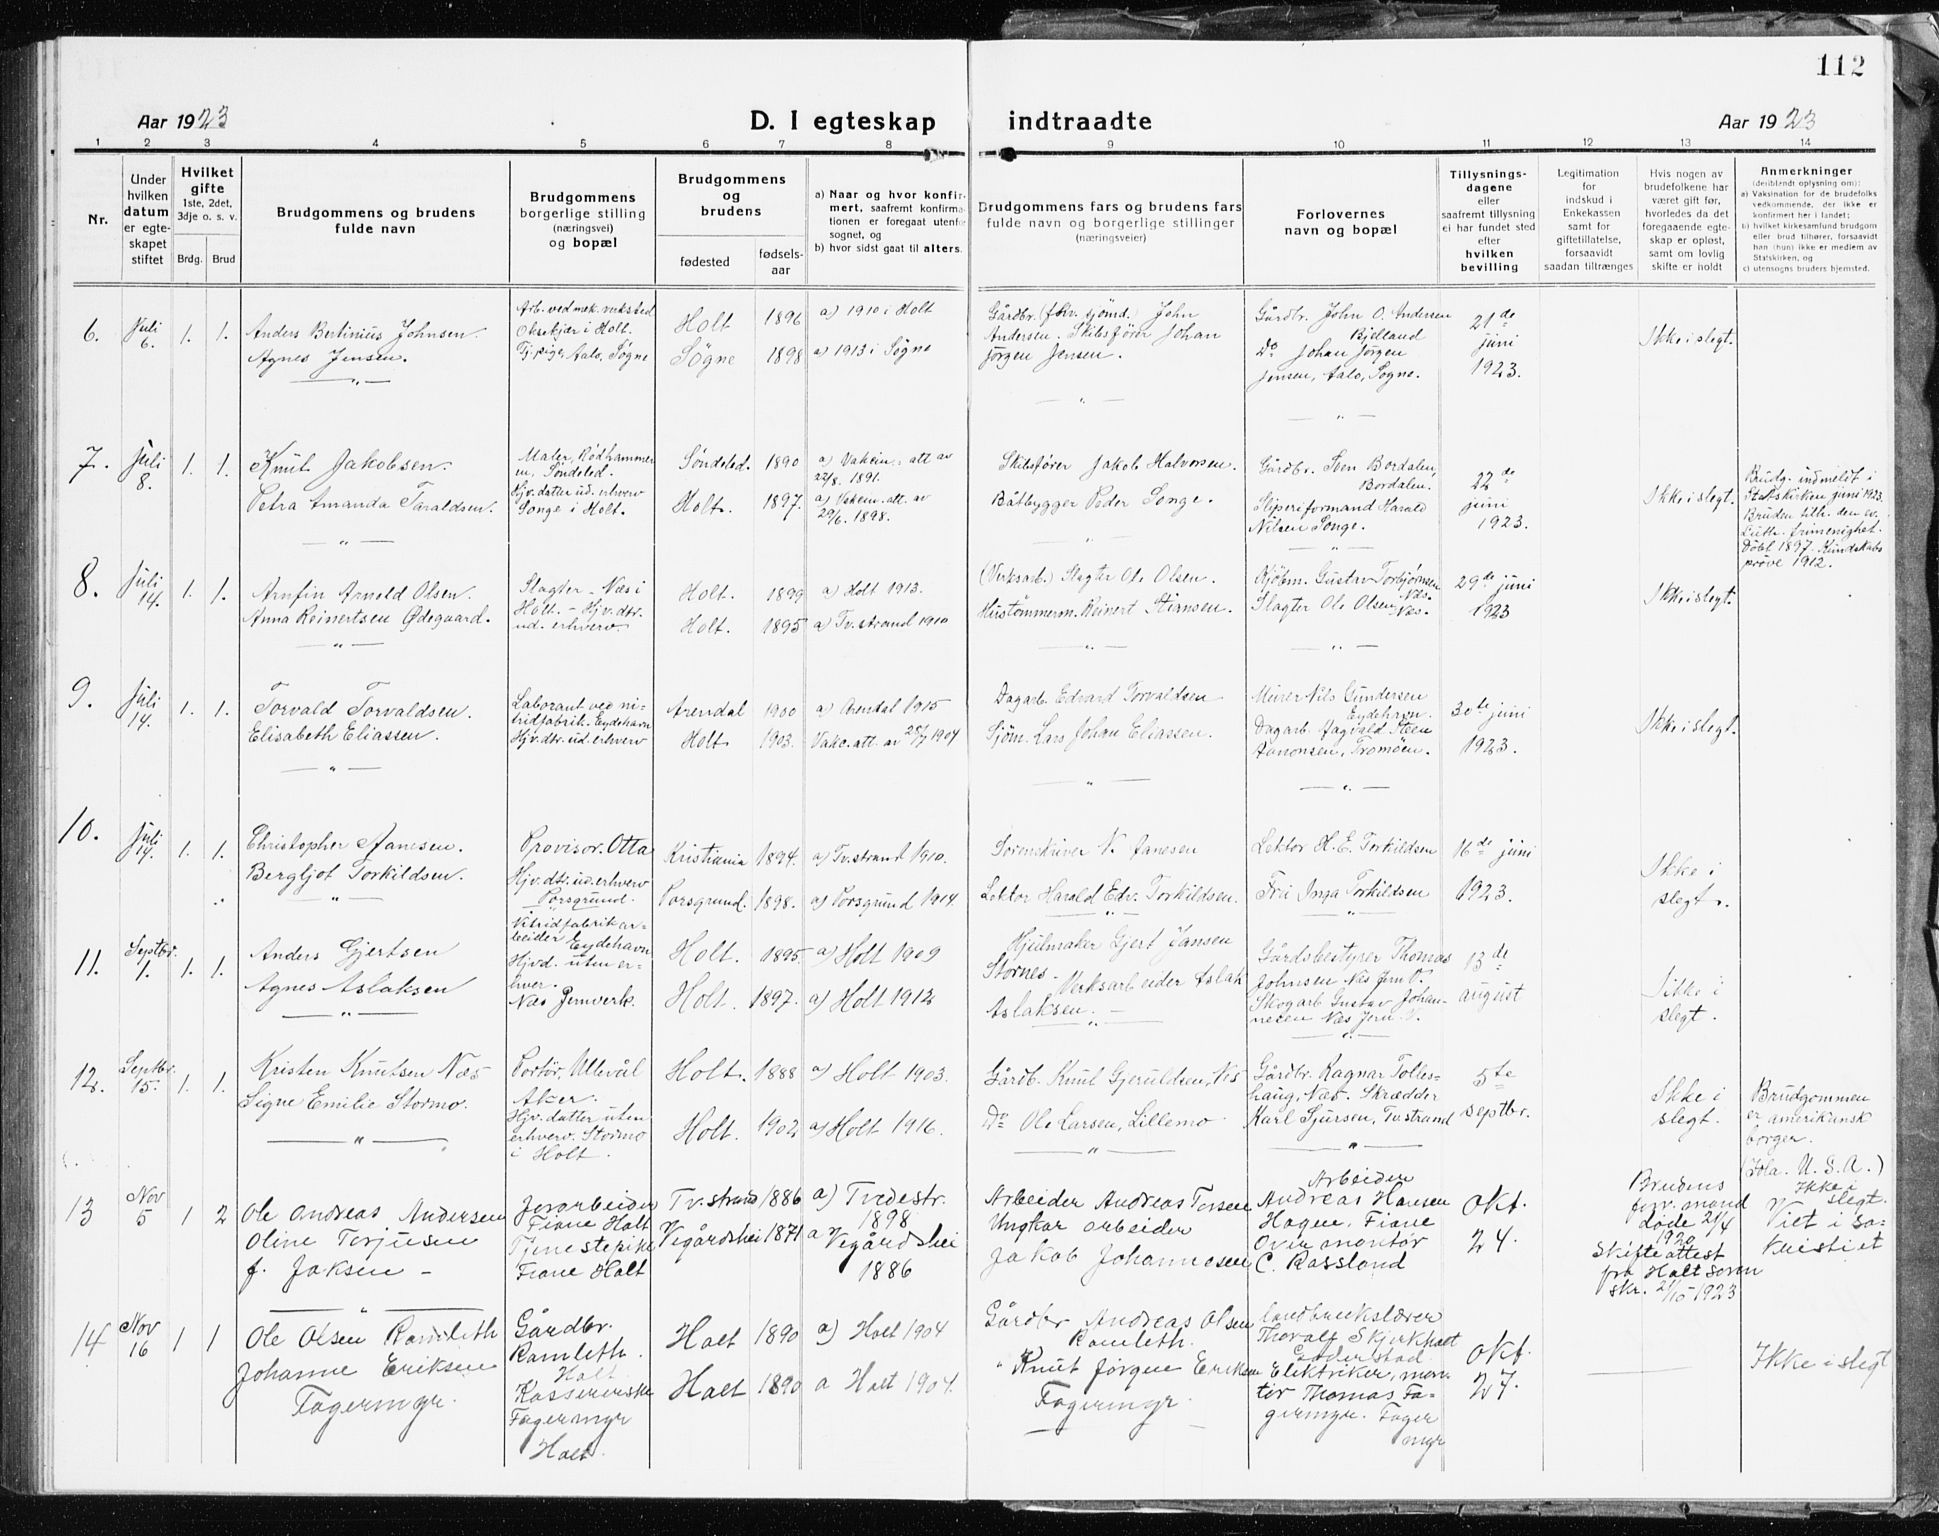 112
Aar 1923
D. I egteskap
indtraadte
Aar 1923
1 2 3 4 5 6 7 8 9 10 11 12 13 14
Nr.
Under
hvilken
datum
er egte-
skapet
stiftet
Hvilket
gifte
1ste, 2det,
3dje o. s. v.
Brdg. Brud
Brudgommens og brudens
fulde navn
Brudgommens
borgerlige stilling
(næringsvei)
og bopæl
Brudgommens
og
brudens
fødested
fødsels-
aar
a) Naar og hvor konfir-
mert, saafremt konfirma-
tionen er foregaat utenfor
sognet, og
b) hvor sidst gaat til alters.
Brudgommens fars og brudens fars
fulde navn og borgerlige stillinger
(næringsveier)
Forlovernes
navn og bopæl
Tillysnings-
dagene
eller
saafremt tillysning
ei har fundet sted
efter
hvilken
bevilling
Legitimation
for
indskud i
Enkekassen
samt for
giftetillatelse,
forsaavidt
saadan tiltrænges
Hvis nogen av
brudefolkene har
været gift før,
hvorledes da det
foregaaende egte-
skap er opløst,
samt om lovlig
skifte er holdt
Anmerkninger
(deriblendt oplysning om):
a) Vaksination for de brudefolks
vedkommende, der ikke er
konfirmert her i landet;
b) hvilket kirkesamfund brudgom
eller brud tilhører, forsaavidt
han (hun) ikke er medlem av
Statskirken, og
c) utensogns bruders hjemsted.
6.
Juli
6.
1. 1.
Anders Bertinius Johnsen.
Agnes Jensen.
Arb. ved mek. verksted
Oksekjær i Holt.
Tj.pige, Aalo, Søgne
Holt 1896
Søgne 1898
a) 1910 i Holt
a) 1913 i Søgne
Gårdbr. (fhv. sjømd.) John
Andersen. Skibsfører Johan
Jørgen Jensen.
Gårdbr. John O. Andersen
Bjelland
Do Johan Jørgen
Jensen, Aalo, Sogne.
21de
juni
1923.
Ikke i slegt.
7.
Juli
8.
1. 1.
Knut Jakobsen.
Petra Amanda Taraldsen.
Maler, Rødhammer
en, Søndeled.
Hjv. datter ud. erhverv
Songe i Holt.
Søndeled. 1890
Holt. 1897.
a) Vakcin. att av
22/8. 1891.
a) Vakcin. att. av
29/6. 1898.
Skibsfører Jakob Halvorsen.
Båtbygger Peder Songe.
Gårdbr. Sven Bordalen,
Bordalen.
Sliperiformand Harald
Nilsen Songe.
22de
juni
1923.
Ikke i slegt.
Brudg. indmeldt i
Statskirken juni 1923.
Bruden tilh. den ev.
Luth. frimenighet.
Døbt 1897. Kundskabs
prøve 1912.
8.
Juli
14.
1. 1.
Arnfin Arnold Olsen.
Anna Reinertsen Ødegaard.
Slagter - Næs i
Holt. - Hjv. dtr.
ud. erhverv.
Holt. 1899
Holt. 1895
a) Holt 1913.
a) Tv.strand 1910
(Verksarb.) Slagter Ole Olsen.
Hustømmerm. Reinert Stiansen.
Kjøbm. Gustav Torbjørnsen
Næs.
Slagter Ole Olsen Næs.
29de juni
1923
Ikke i slegt.
9.
Juli
14.
1. 1.
Torvald Torvaldsen.
Elisabeth Eliassen.
Laborant ved ni-
tridfabrik. Eydehavn
Hjv. dtr. ud. erhverv
Arendal 1900
Holt 1903.
a) Arendal 1915
Vakc. att. av 28/7 1904
Dagarb. Edvard Torvaldsen
Sjøm. Lars Johan Eliassen.
Murer Nils Gundersen
Eydehavn.
Dagarb. Aagvald Steen
Aanonsen, Tromøen.
30te juni
1923.
Ikke i slegt.
10.
Juli
14.
1. 1.
Christopher Aanesen.
Bergljot Torkildsen.
Provisor. Otta
Hjv. dtr. ud. erhverv
Porsgrund.
Kristiania 1894.
Porsgrund. 1898.
a) Tv.strand 1910.
a) Porsgrund 1914.
Sorenskriver N. Aanesen
Lektor Harald Edv. Torkildsen.
Lektor H. E. Torkildsen
Fru Inga Torkildsen
16de juni
1923.
Ikke i
slegt.
11.
Septbr.
1.
1. 1.
Anders Gjertsen
Agnes Aslaksen
Nitridfabrikar-
beider Eydehavn
Hjvd. uten er-
hver.
Næs Jernverk.
Holt. 1895.
Holt. 1897.
a) Holt 1909
a) Holt 1912
Hjulmaker Gjert Jansen
Stornes - Verksarbeider Aslak
Aslaksen.
Gårdsbestyrer Thomas
Johnsen Næs Jernv.
Skogarb Gustav Johan-
nesen Næs Jern.
13de
august
Ikke i
slegt.
12.
Septbr.
15.
1. 1.
Kristen Knutsen Næs
Signe Emilie Stormo.
Portør, Ullevål
Aker.
Hjv. datter uten
erhverv. Stormo
i Holt.
Holt. 1888
Holt. 1902
a) Holt 1903.
a) Holt 1916.
Gårdb. Knut Gjeruldsen, Næs
Do Ole Larsen, Lillemo
Gårdbr. Ragnar Tolles-
haug, Næs. Skrædder
Karl Sjursen, Tvstrand
5te
septbr.
Ikke i
slegt.
Brudgommen
er amerikansk
borger.
(Iola. U. S. A.)
Ikke i
slegt.
13
Nov
5
1 2
Ole Andreas Andersen
Oline Terjusen
f. Jaksen -
Jorarbeider
Fiane Holt
Tjenestepike
Fiane Holt
Tv.strand 1886
Vegårdshei 1871
a) Tvedestr.
1898
a Vegårdshei
1886
Arbeider Andreas Tersen
Ungkar arbeider
Jakob Johannesen
Arbeider
Andreas Hansen
Hagen, Fiane
Overmontør
C. Rassland
Okt.
24.
Brudens
forr. mand
døde 21/4
1920
Skifteattest
fra Holt soren
skr. 21/10 1923
Viet i Sa-
kristiet
14
Nov
16
1 1
Ole Olsen Ramleth
Johanne Eriksen
Fagermyr.
Gårdbr.
Ramleth.
Holt
Kassererske
Fagermyr
Holt.
Holt 1890
Holt 1890
a) Holt 1904
a Holt 1904.
Gårdbr Andreas Olsen
Ramleth.
" Knut Jørgen Eriksen
Fagermyr.
landbrukslærer
Thoralf Skjerkholt
Gjderstad
Elektriker, mon-
tør Thomas Fa-
germyr. Fager
myr
Okt.
27.
Ikke i slegt